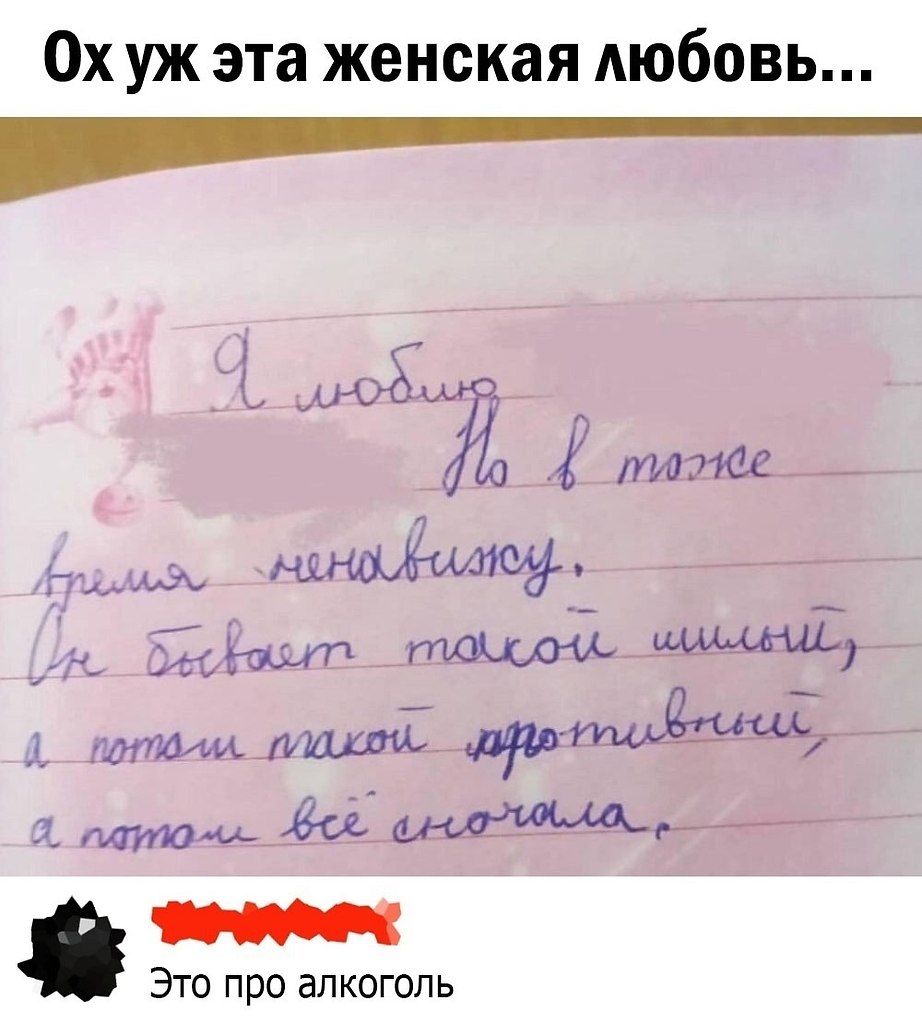 Ох уж эта женская любовь...
Я люблю
Но в тоже
время ненавижу.
Он бывает такой милый,
а потом такой противный,
а потом всё сначала.
Это про алкоголь